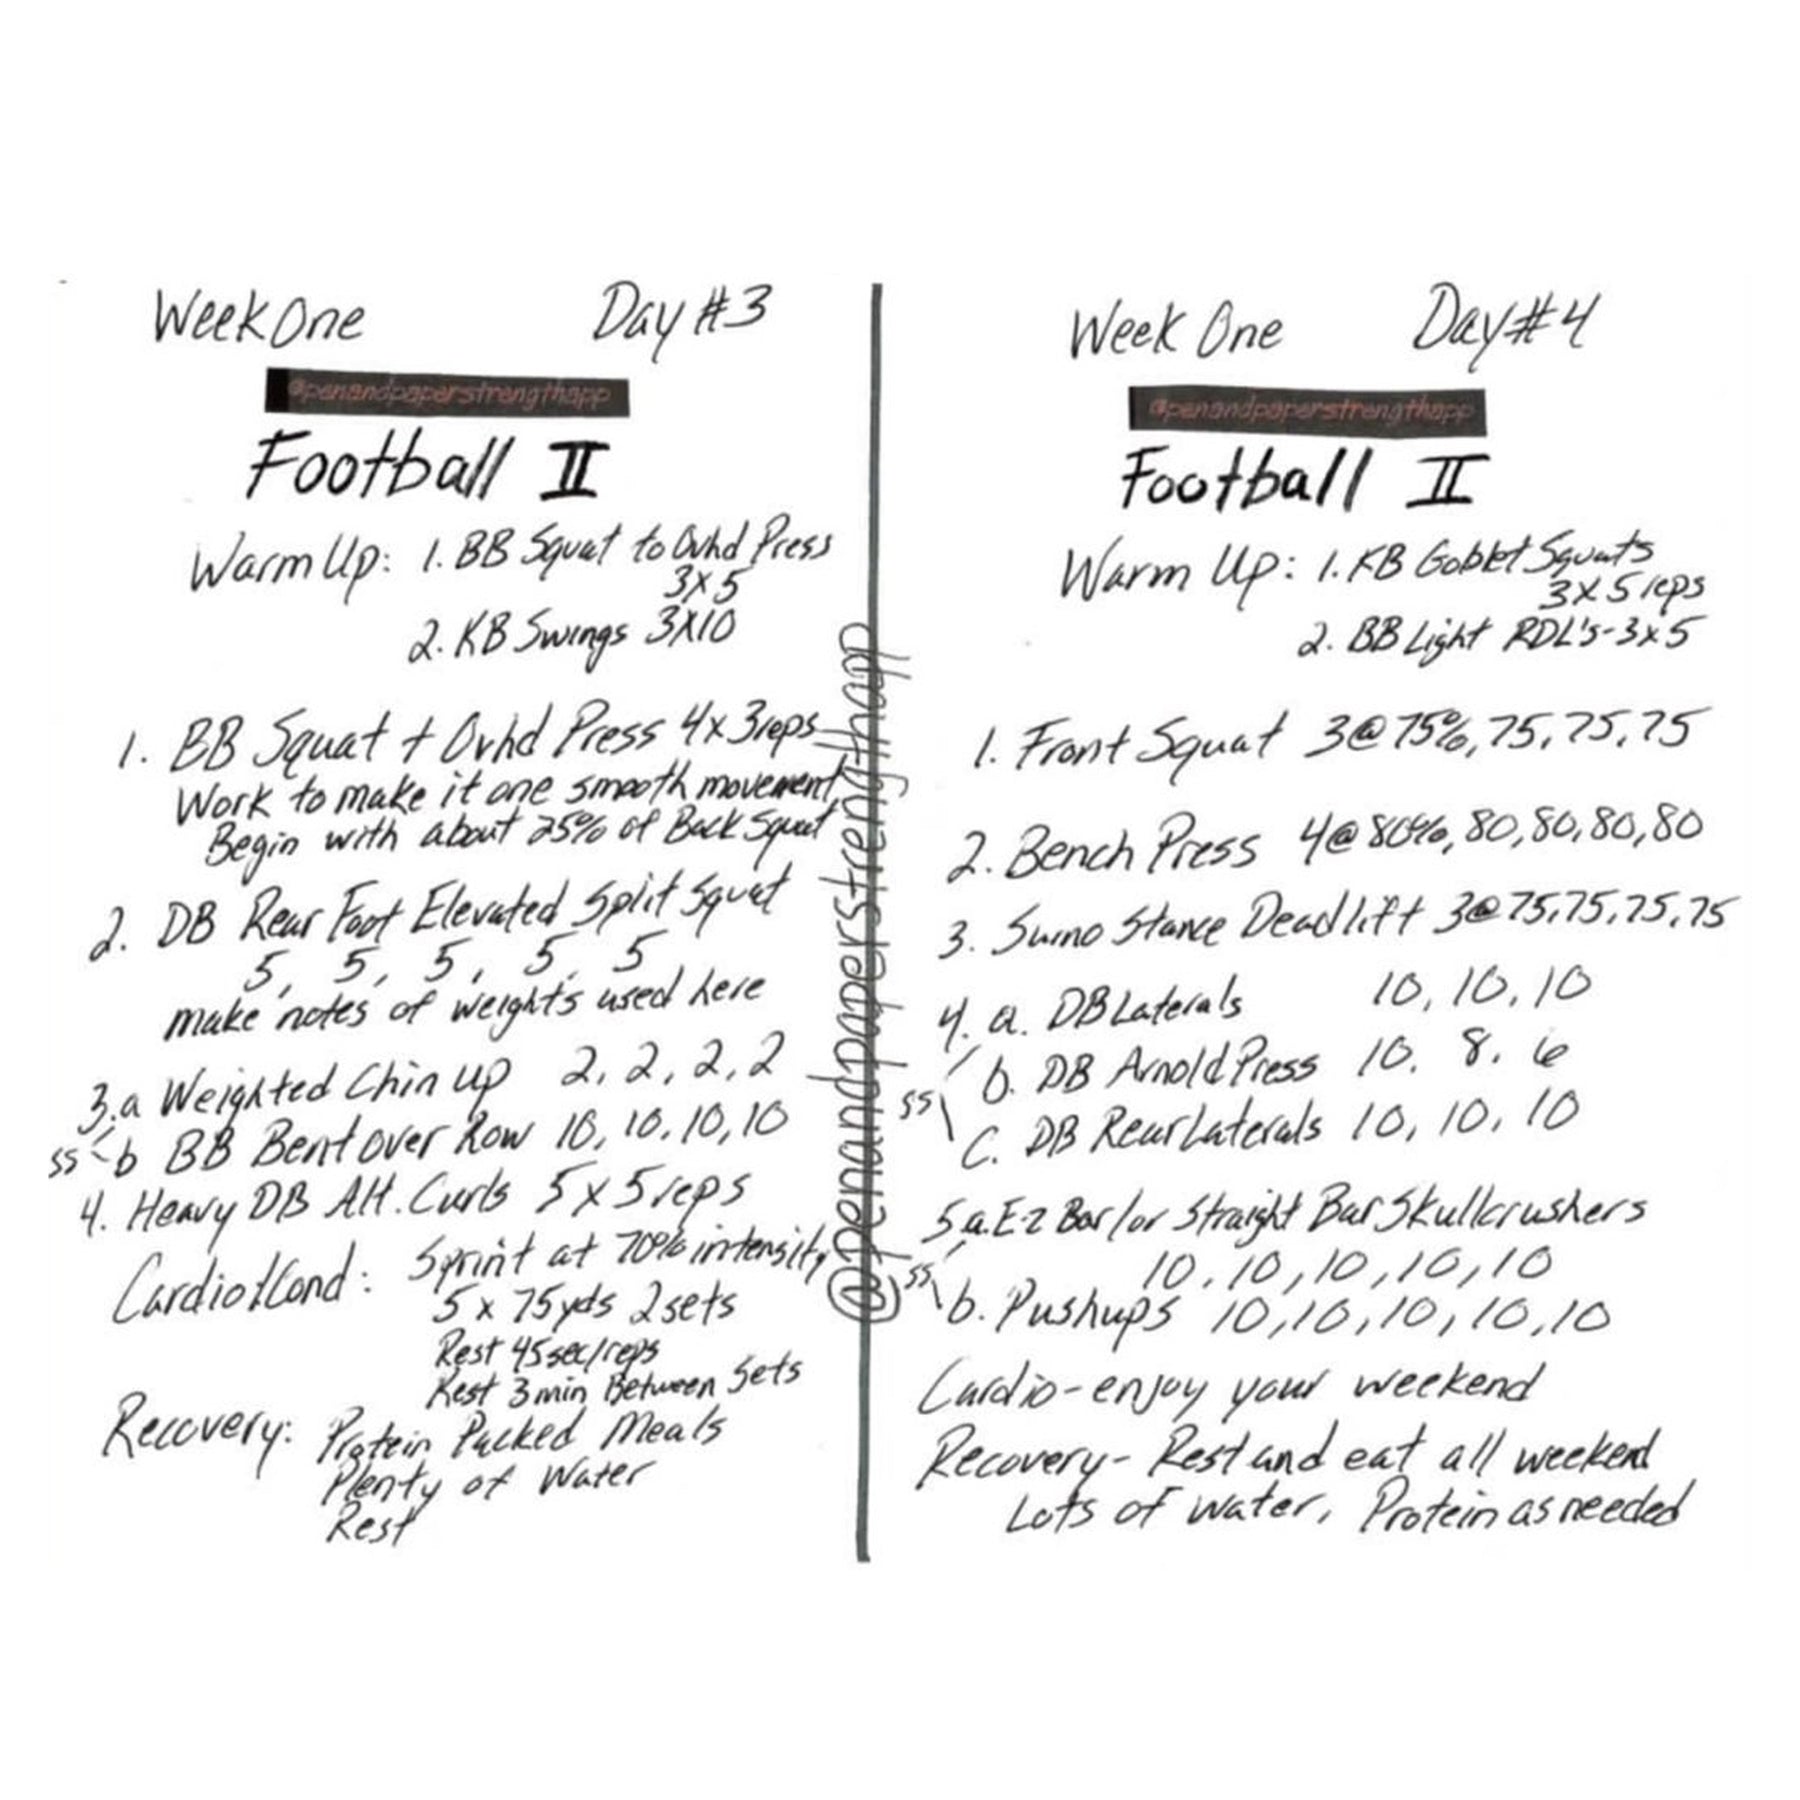 Week One Day #3
@penandpaperstrengthapp
Football II
Warm Up: 1. BB Squat to Ovhd Press
3x5
2. KB Swings 3x10
1. BB Squat + Ovhd Press 4x3reps
Work to make it one smooth movement
Begin with about 25% of Back Squat
2. DB Rear Foot Elevated Split Squat
5, 5, 5, 5, 5
make notes of weights used here
3.a Weighted Chin up 2, 2, 2, 2
ss b BB Bent over Row 10, 10, 10, 10
4. Heavy DB Alt. Curls 5x5reps
Cardio/Cond: Sprint at 70% intensity
5 x 75yds 2sets
Rest 45sec/reps
Rest 3min Between Sets
Recovery: Protein Packed Meals
Plenty of Water
Rest
@penandpaperstrengthapp
Week One Day #4
@penandpaperstrengthapp
Football II
Warm Up: 1. KB Goblet Squats
3x5 reps
2. BB Light RDL's-3x5
1. Front Squat 3@75%, 75, 75, 75
2. Bench Press 4@80%, 80, 80, 80, 80
3. Sumo Stance Deadlift 3@75, 75, 75, 75
4. a. DB Laterals 10, 10, 10
ss b. DB Arnold Press 10. 8. 6
C. DB Rear Laterals 10, 10, 10
5.a. E-z Bar/or Straight Bar Skullcrushers
10, 10, 10, 10, 10
ss b. Pushups 10, 10, 10, 10, 10
Cardio-enjoy your weekend
Recovery- Rest and eat all weekend
Lots of water, Protein as needed